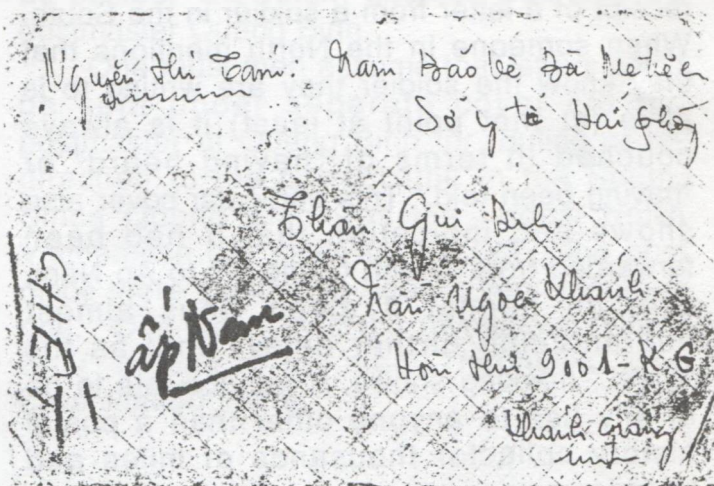 Nguyễn Thị Tam: Trạm Bảo vệ Bà Mẹ trẻ em
Sở y tế Hải phòng
Thân Gửi Anh
Trần Ngọc Khánh
Hòm thư 9001-KG
Khánh Giang
ấp Nam
CHẾT